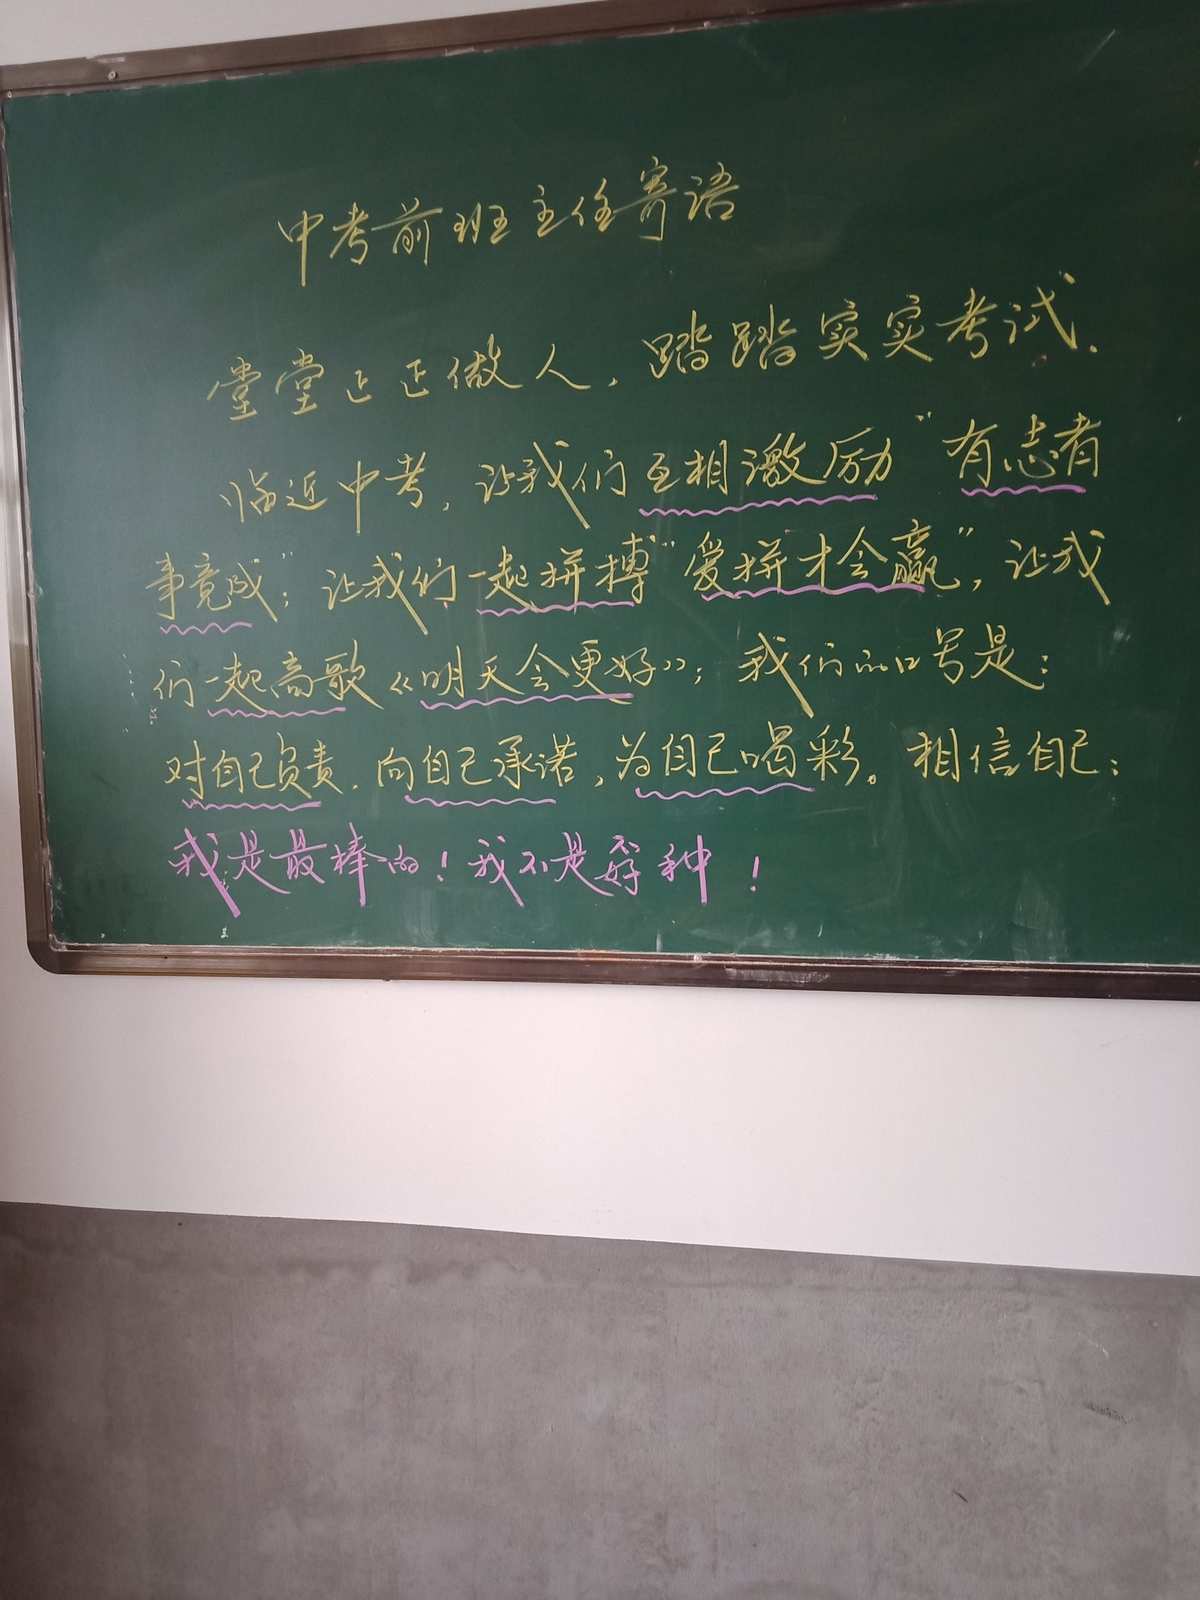 中考前班主任寄语
堂堂正正做人，踏踏实实考试．
临近中考，让我们互相激励“有志者
事竟成”；让我们一起拼搏“爱拼才会赢”，让我
们一起高歌《明天会更好》；我们的口号是：
对自己负责．向自己承诺，为自己喝彩。相信自己：
我是最棒的！我不是孬种！